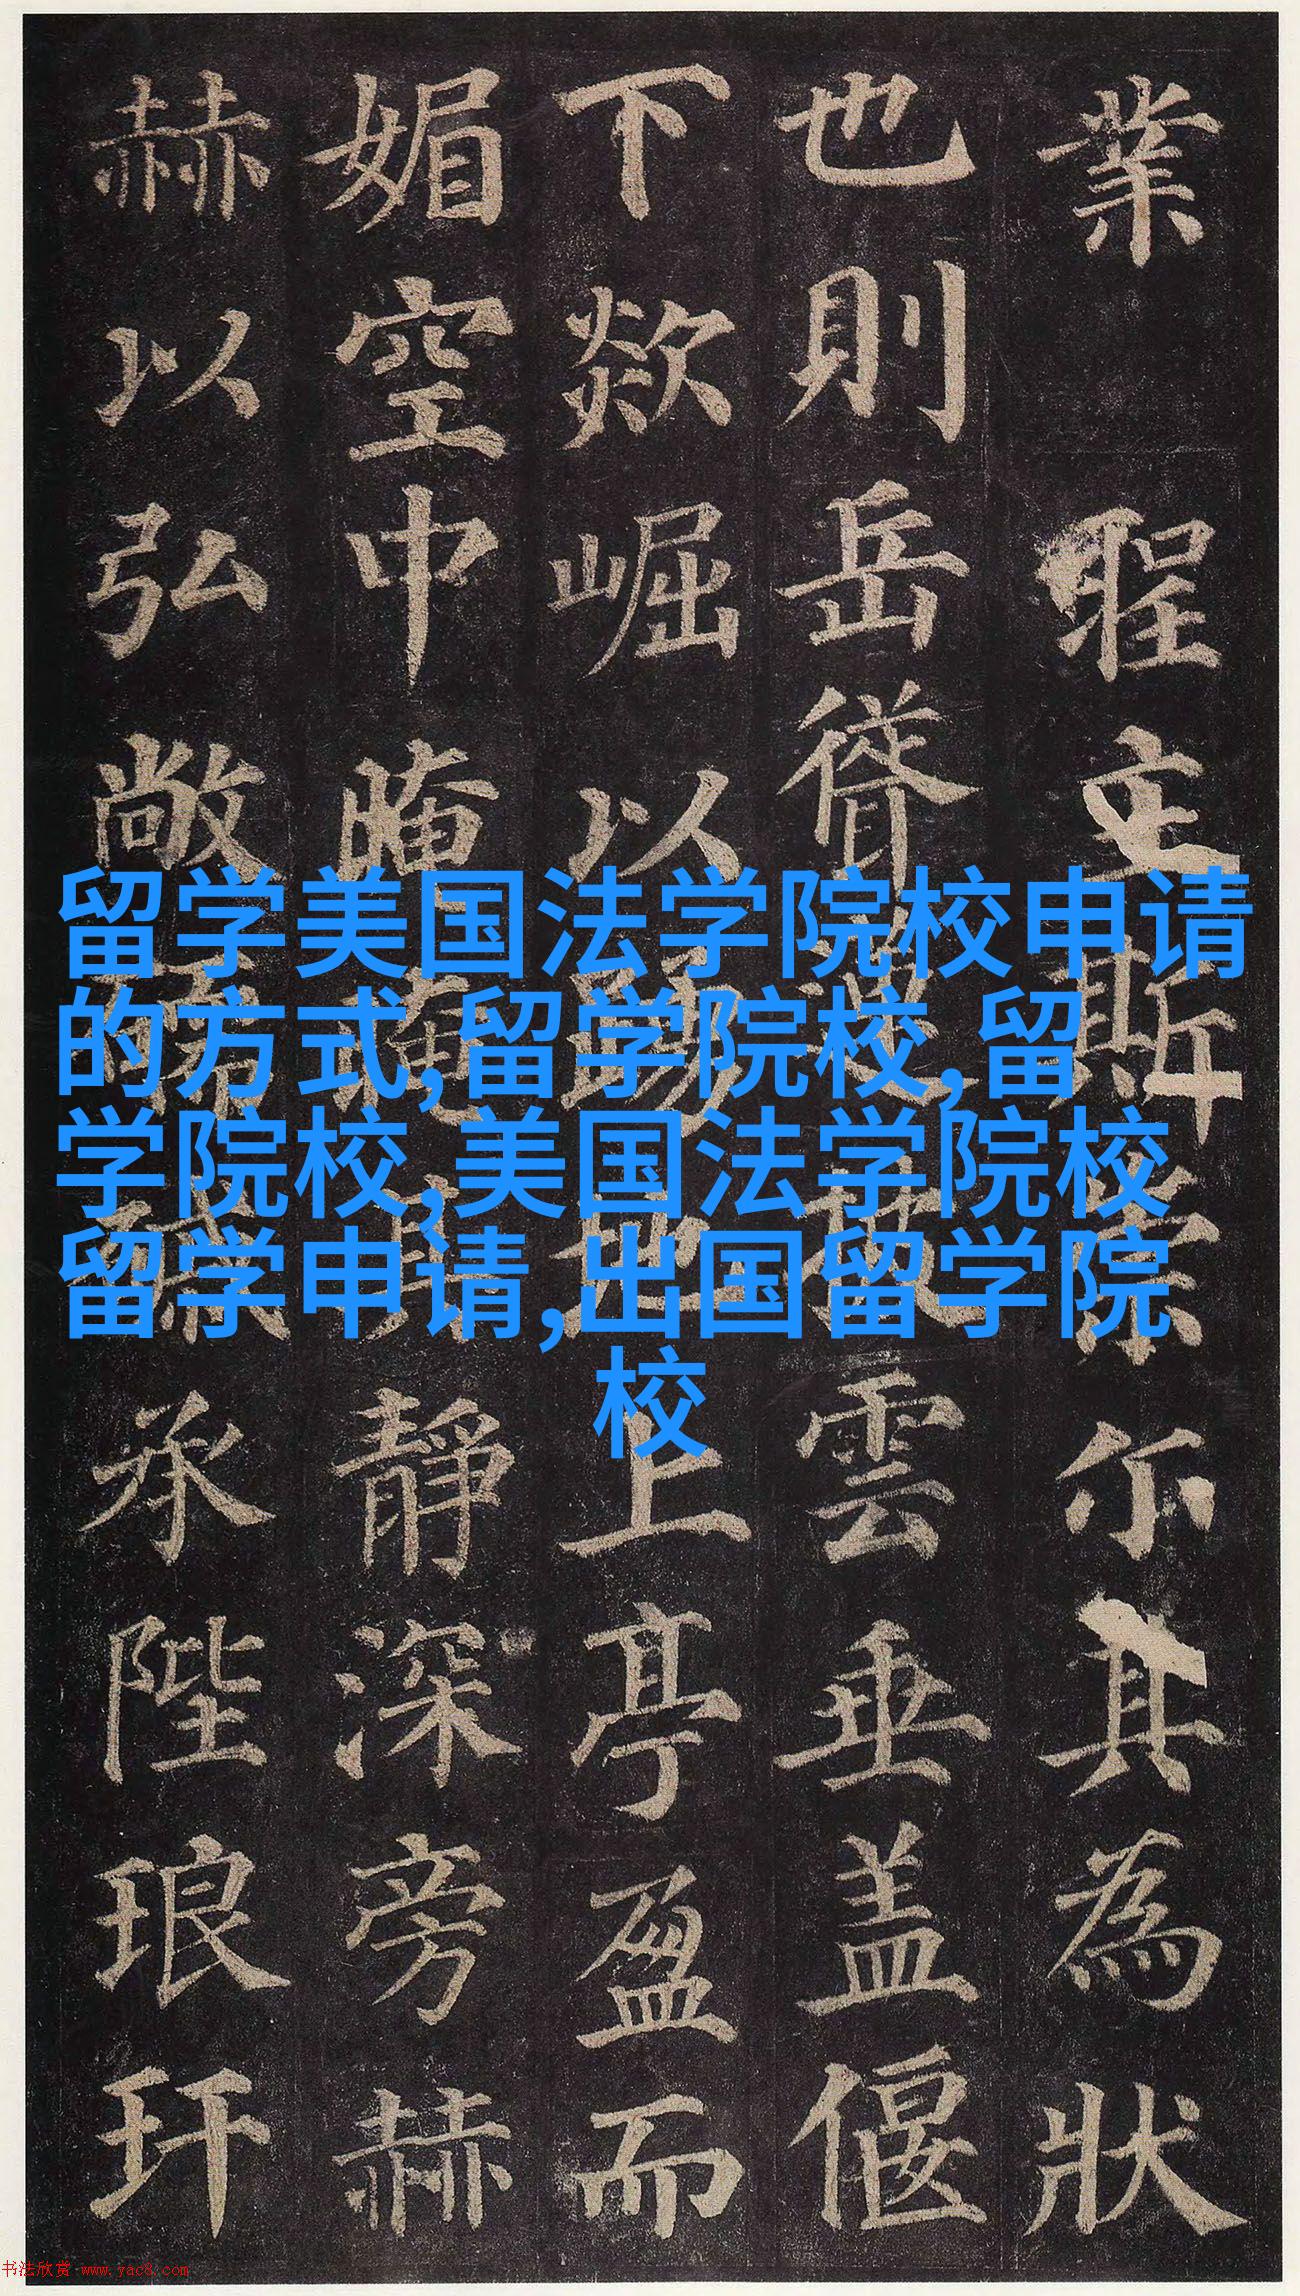 業立斯宗尓其為狀
也則岳聳披雲垂盖偃
下欻崛以踴地上亭盈而
媚空中晻靜深旁赫
赫以弘敞承陛琅玕
留学美国法学院校申请
的方式,留学院校,留
学院校,美国法学院校
留学申请,出国留学院
校
书法欣赏 www.yac8.com